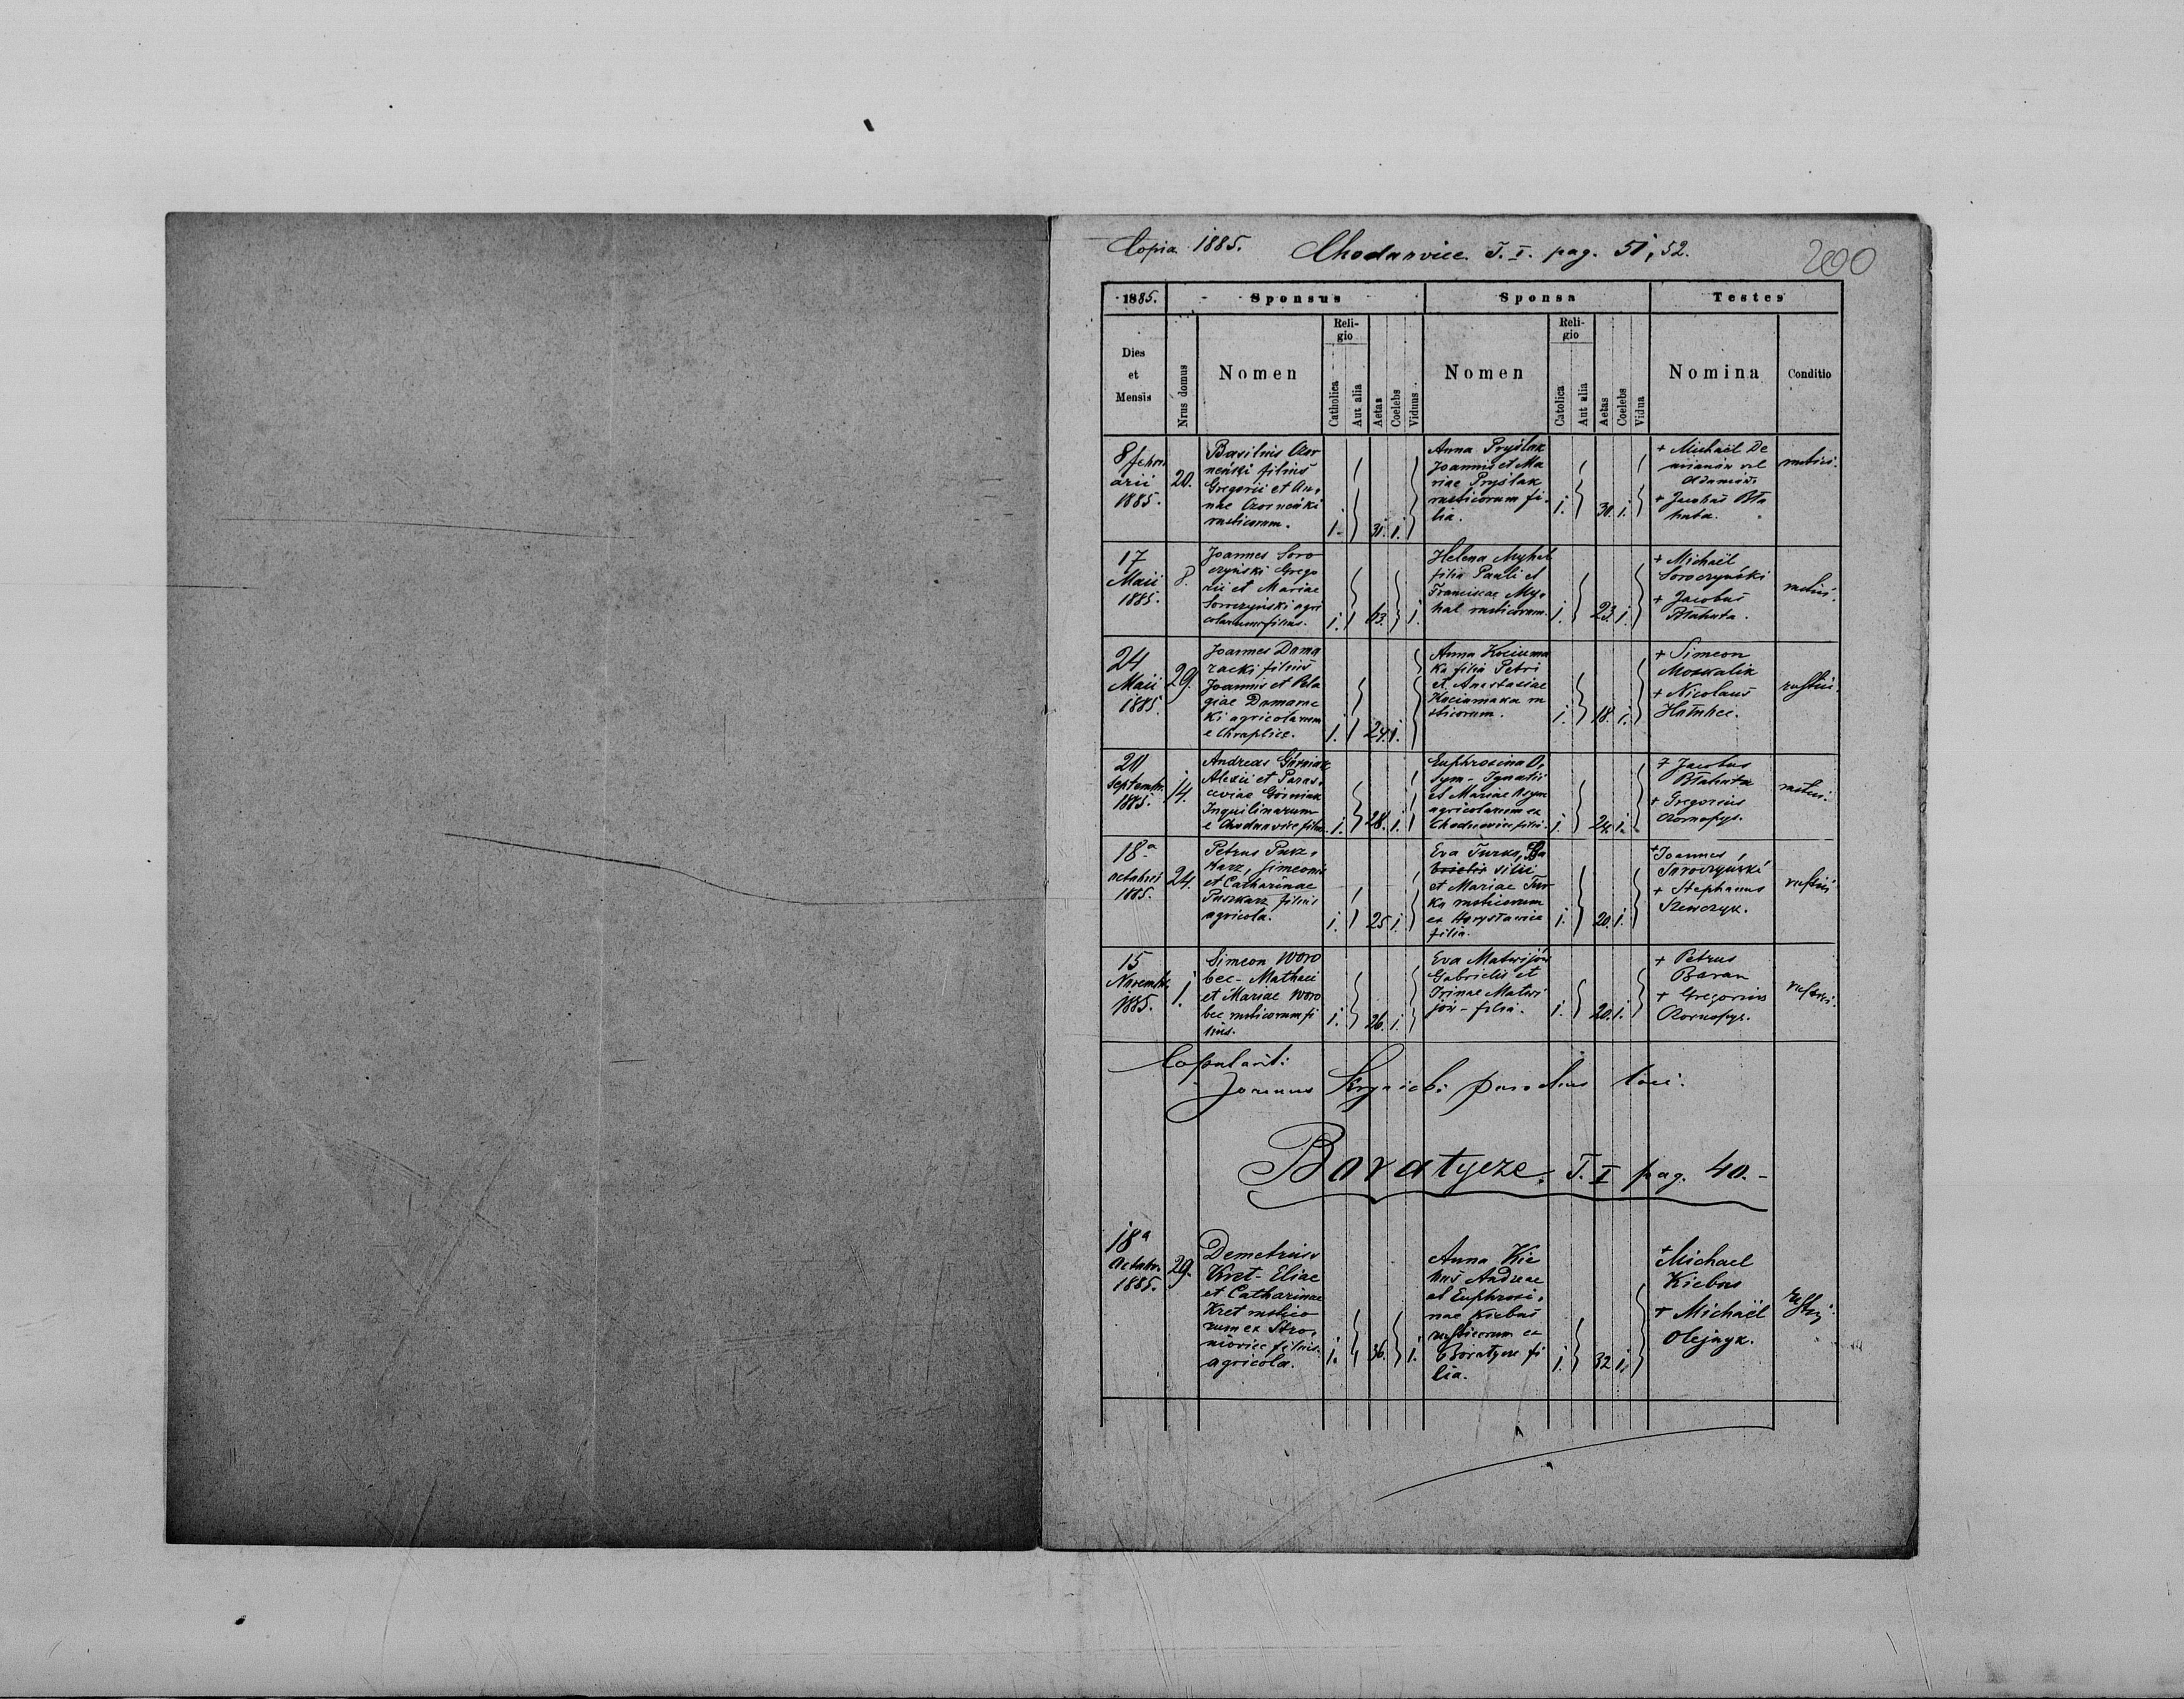 Copia 1885. Chodnovice T. I. pag. 51, 52.
200
1885. Sponsus Sponsa Testes
Dies et Mensis
Nrus domus
Nomen
Religio
Catholica
Aut alia
Aetas
Coelebs
Viduus
Nomen
Religio
Catolica
Aut alia
Aetas
Coelebs
Vidua
Nomina
Conditio
8 febru
arii
1885.
20.
Basilius
filius
Gregorii et An,
nae
rusticorum.
1. 31. 1.
Anna Pryślak
Joannis et Ma
riae Pryślak
rusticorum fi-
lia.
1. 30. 1.
+ Michaël De
vel
+ Jacobus Bła
huta.
rustici.
17
Maii
1885.
8.
Joannes Soro
czyński Grego
rii et Mariae
Soroczyński agri
colarum filius.
1. 63. 1.
Helena Myhal
filia Pauli et
Franciscae My,
hal rusticorum.
1. 23. 1.
+ Michaël
Soroczyński
+ Jacobus
Błahuta.
rustici.
24
Maii
1885.
29.
Joannes Dama
racki filius
Joannis et Pela
giae Damarac
ki agricolarum
e Chraplice.
1. 24. 1.
Anna Kociuma
ka filia Petri
et Anastasiae
Kociumaka ru
sticorum.
1. 18. 1.
+ Simeon
Moskalik
+ Nicolaus
rustici.
20
Septembr.
1885.
14.
Andreas Górniak
Alexii et Paras,
ceviae Górniak
Inquilinorum
e Chodnovice filius.
1. 28. 1.
Euphrosina O,
sym - Ignatii
et Mariae Osym
agricolarum ex
Chodnovice filia.
1. 24. 1.
+ Jacobus
Błahuta
+ Gregorius
Czornopys.
rustici.
18ª
octobris
1885.
24.
Petrus Pusz,
karz, Simeonis
et Catharinae
Puszkarz filius
agricola.
1. 25. 1.
Eva Turka, Ba
silii
et Mariae Tur
ka rusticorum
ex Horysławice
filia.
1. 20. 1.
+ Joannes
Soroczyński
+ Stephanus
Szewczyk.
rustici
15
Novembr.
1885.
1.
Simeon Woro
bec - Mathaei
et Mariae Woro
bec rusticorum fi
lius.
1. 26. 1.
Eva Matwijów
Gabrielis et
Irinae Matwi
jów - filia.
1. 20. 1.
+ Petrus
Baran
+ Gregorius
Czornopys.
rustici.
Copulavit:
Joannes parochus loci.
Boratycze. T. I pag. 40. -
18ª
Octobr.
1885.
29.
Demetrius
Kret - Eliae
et Catharinae
Kret rustico
rum ex Stro,
niovice filius.
agricola.
1. 36. 1.
Anna Kie
bus Andreae
et Euphrosi,
nae Kiebus
rusticorum ex
Boratycze fi
lia.
1. 32 1.
+ Michael
Kiebus
+ Michaël
Olejnyk.
rustici.